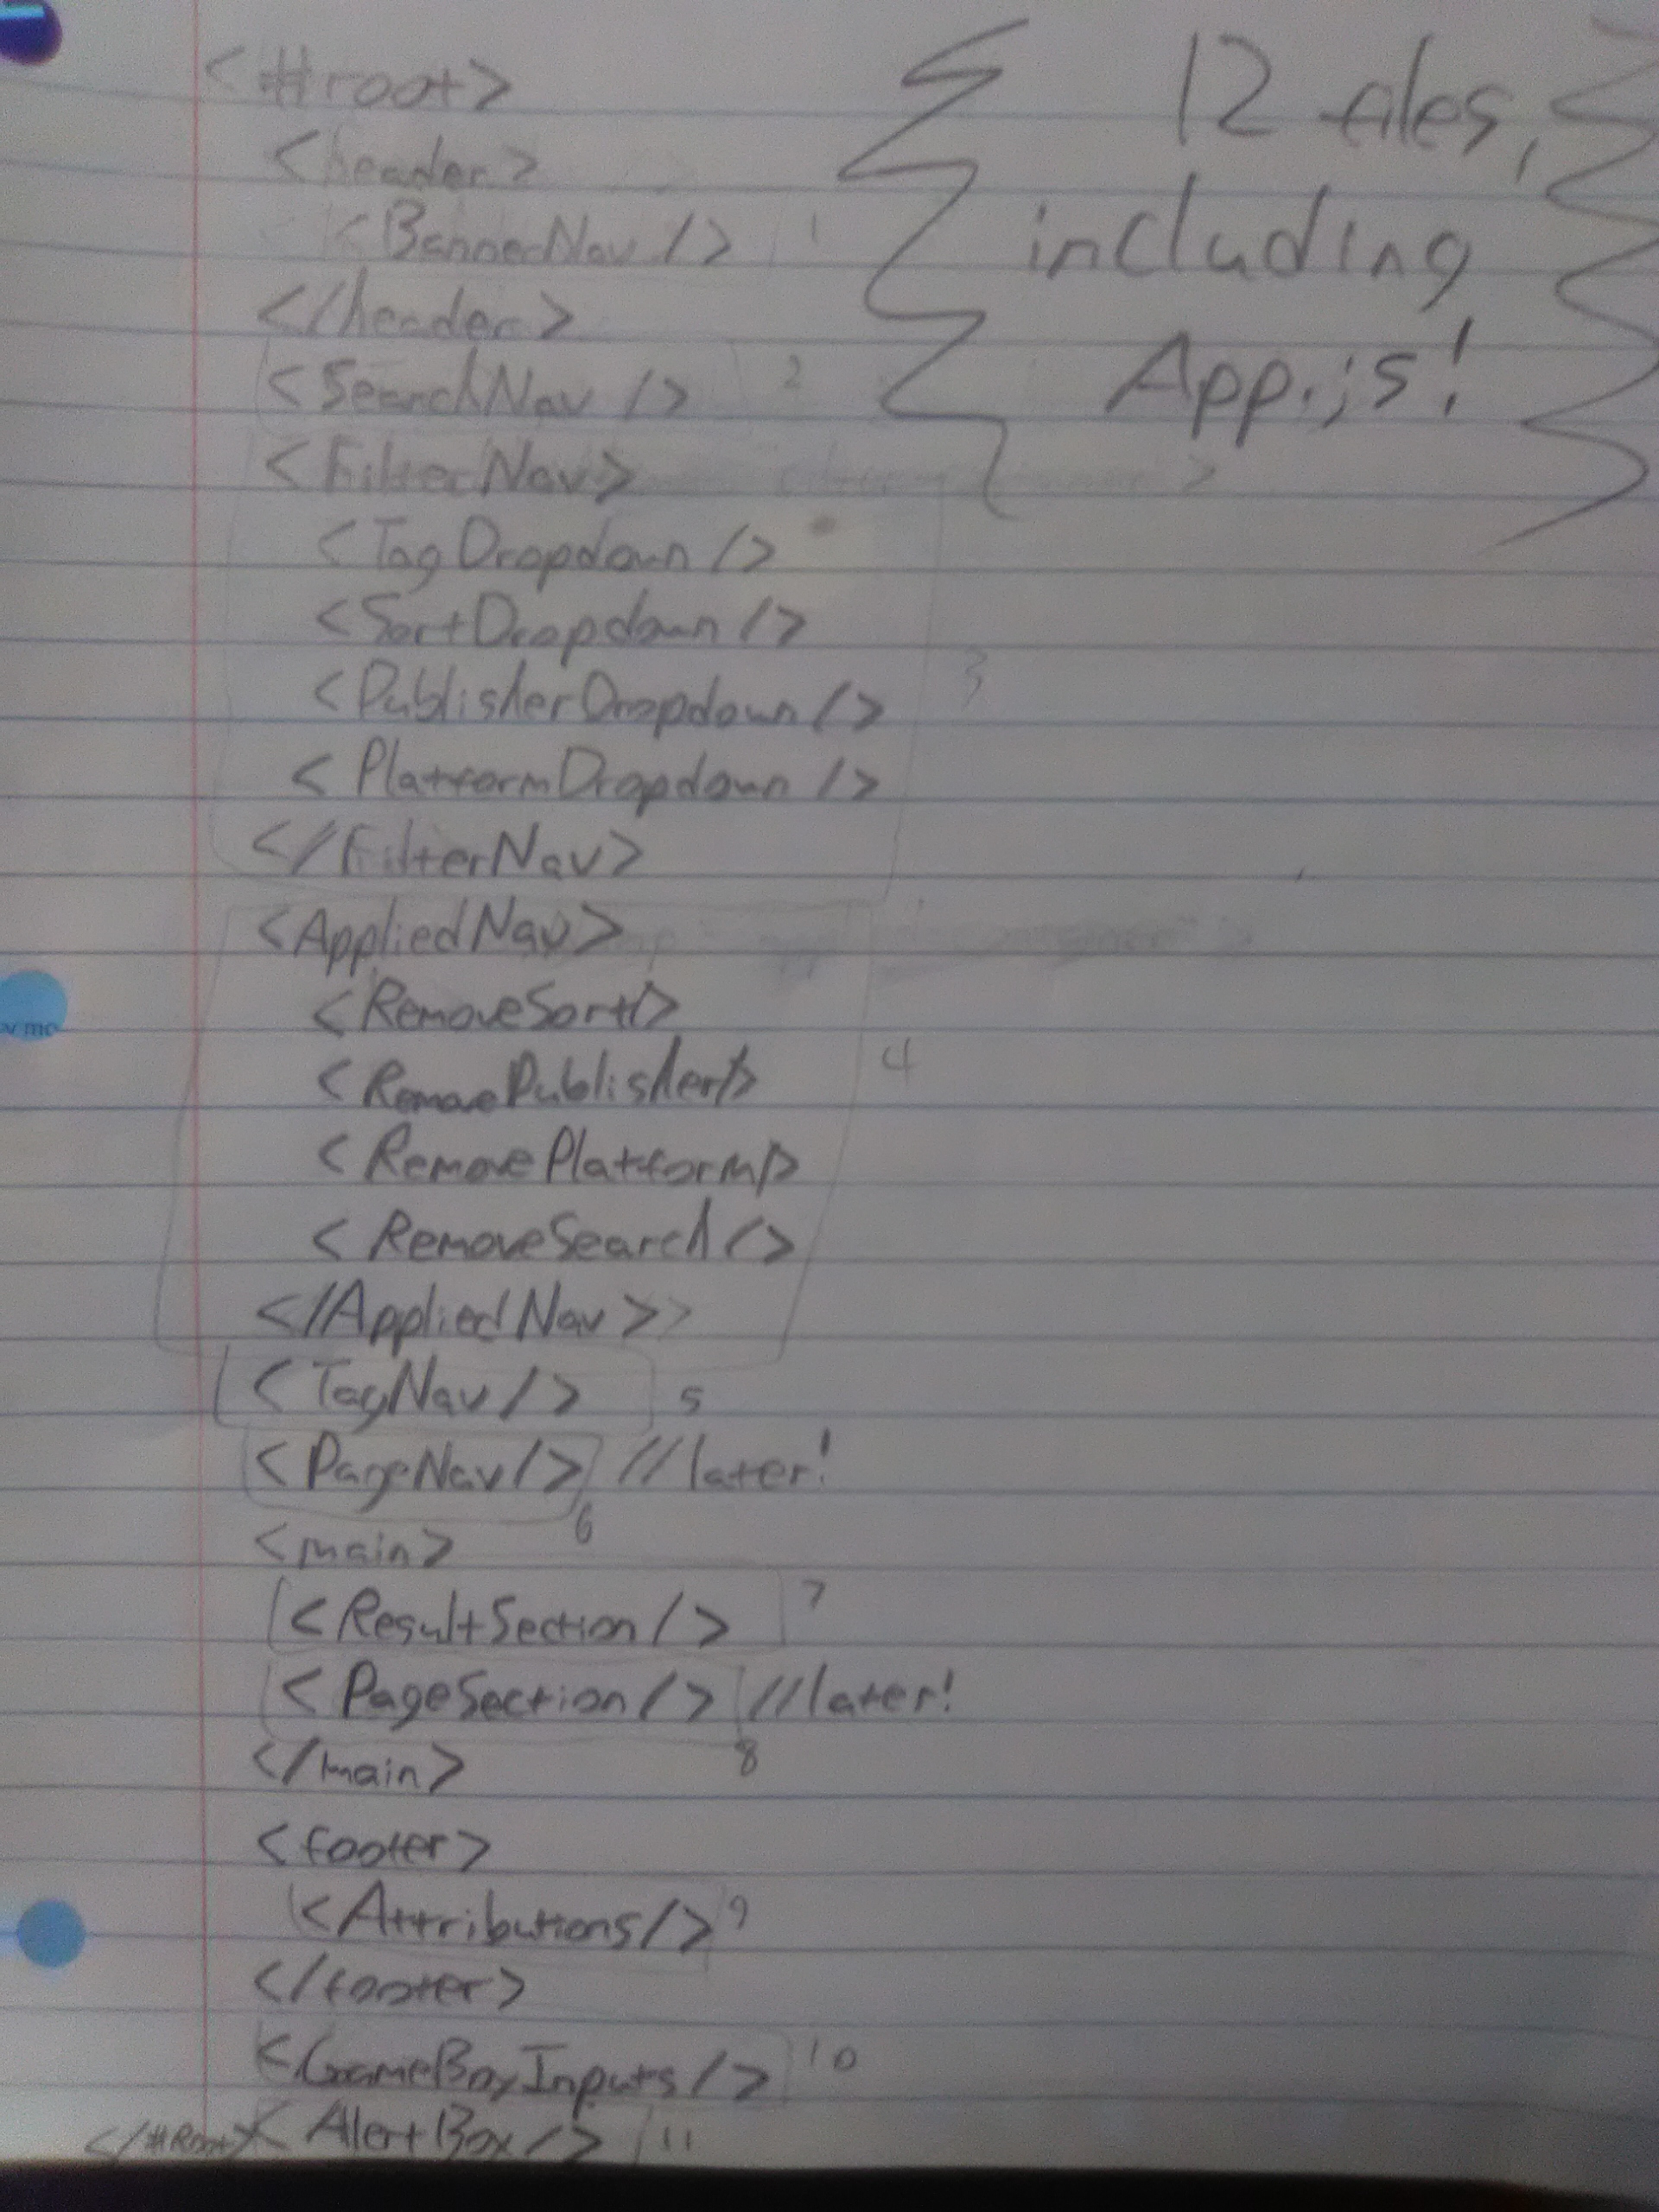 <#root>
<header>
<BannerNav /> 1
</header>
<SearchNav /> 2
<FilterNav>
<TagDropdown />
<SortDropdown />
<PublisherDropdown /> 3
<PlatformDropdown />
</FilterNav>
<AppliedNav>
<RemoveSort/>
<RemovePublisher/> 4
<RemovePlatform/>
<RemoveSearch />
</AppliedNav>>
<TagNav /> 5
<PageNav/> //later!
6
<main>
<ResultSection /> 7
<PageSection /> //later!
8
</main>
<footer>
<Attributions /> 9
</footer>
<GameBoxInputs /> 10
</#Root> <AlertBox /> 11
12 files,
including
App.js!